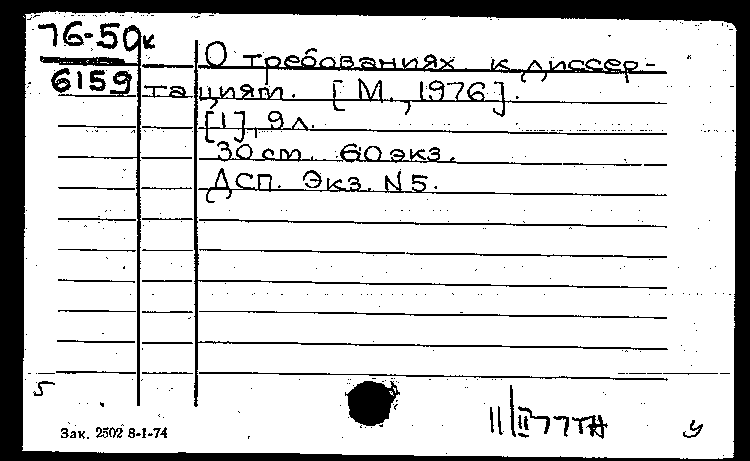 76-50к
6159
О требованиях к диссер-
тациям. [М., 1976].
[1], 9 л.
30 см. 60 экз.
ДСП. Экз. N 5.
5
11/II 77 ТН
у
Зак. 2502 8-1-74